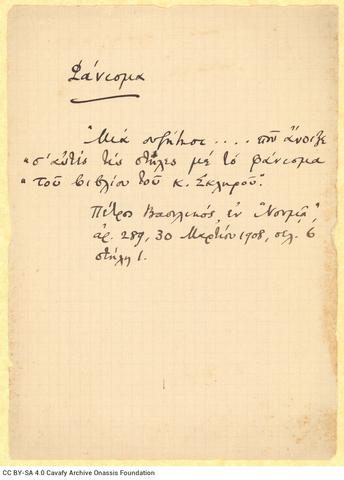 Φάνισμα
"Μιά συζήτησι.... πού άνοιξε
" σ' αὐτές τές στήλες μέ τό φάνισμα
" τοῦ βιβλίου τοῦ κ. Σκληροῦ".
Πέτρος Βασιλικός, ἐν "Νουμᾷ",
ἀρ. 289, 30 Μαρτίου 1908, σελ. 6
στήλη 1.
CC BY-SA 4.0 Cavafy Archive Onassis Foundation